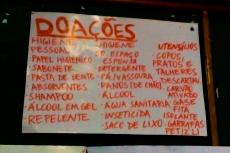 DOAÇÕES
HIGIENE PESSOAL
PAPEL HIGIÊNICO
SABONETE
PASTA DE DENTE
ABSORVENTES
SHAMPOO
ÁLCOOL EM GEL
REPELENTE
HIGIENE
ESPAÇO
ESPONJA
DETERGENTE
PÁ/VASSOURA
PANOS (DE CHÃO)
ÁLCOOL
ÁGUA SANITÁRIA
INSETICIDA
SACO DE LIXO
UTENSÍLIOS
COPOS,
PRATOS E
TALHERES
DESCARTÁV
CARVÃO
GASE
FITA
ISOLANTE
GARRAFAS
PET (2L)